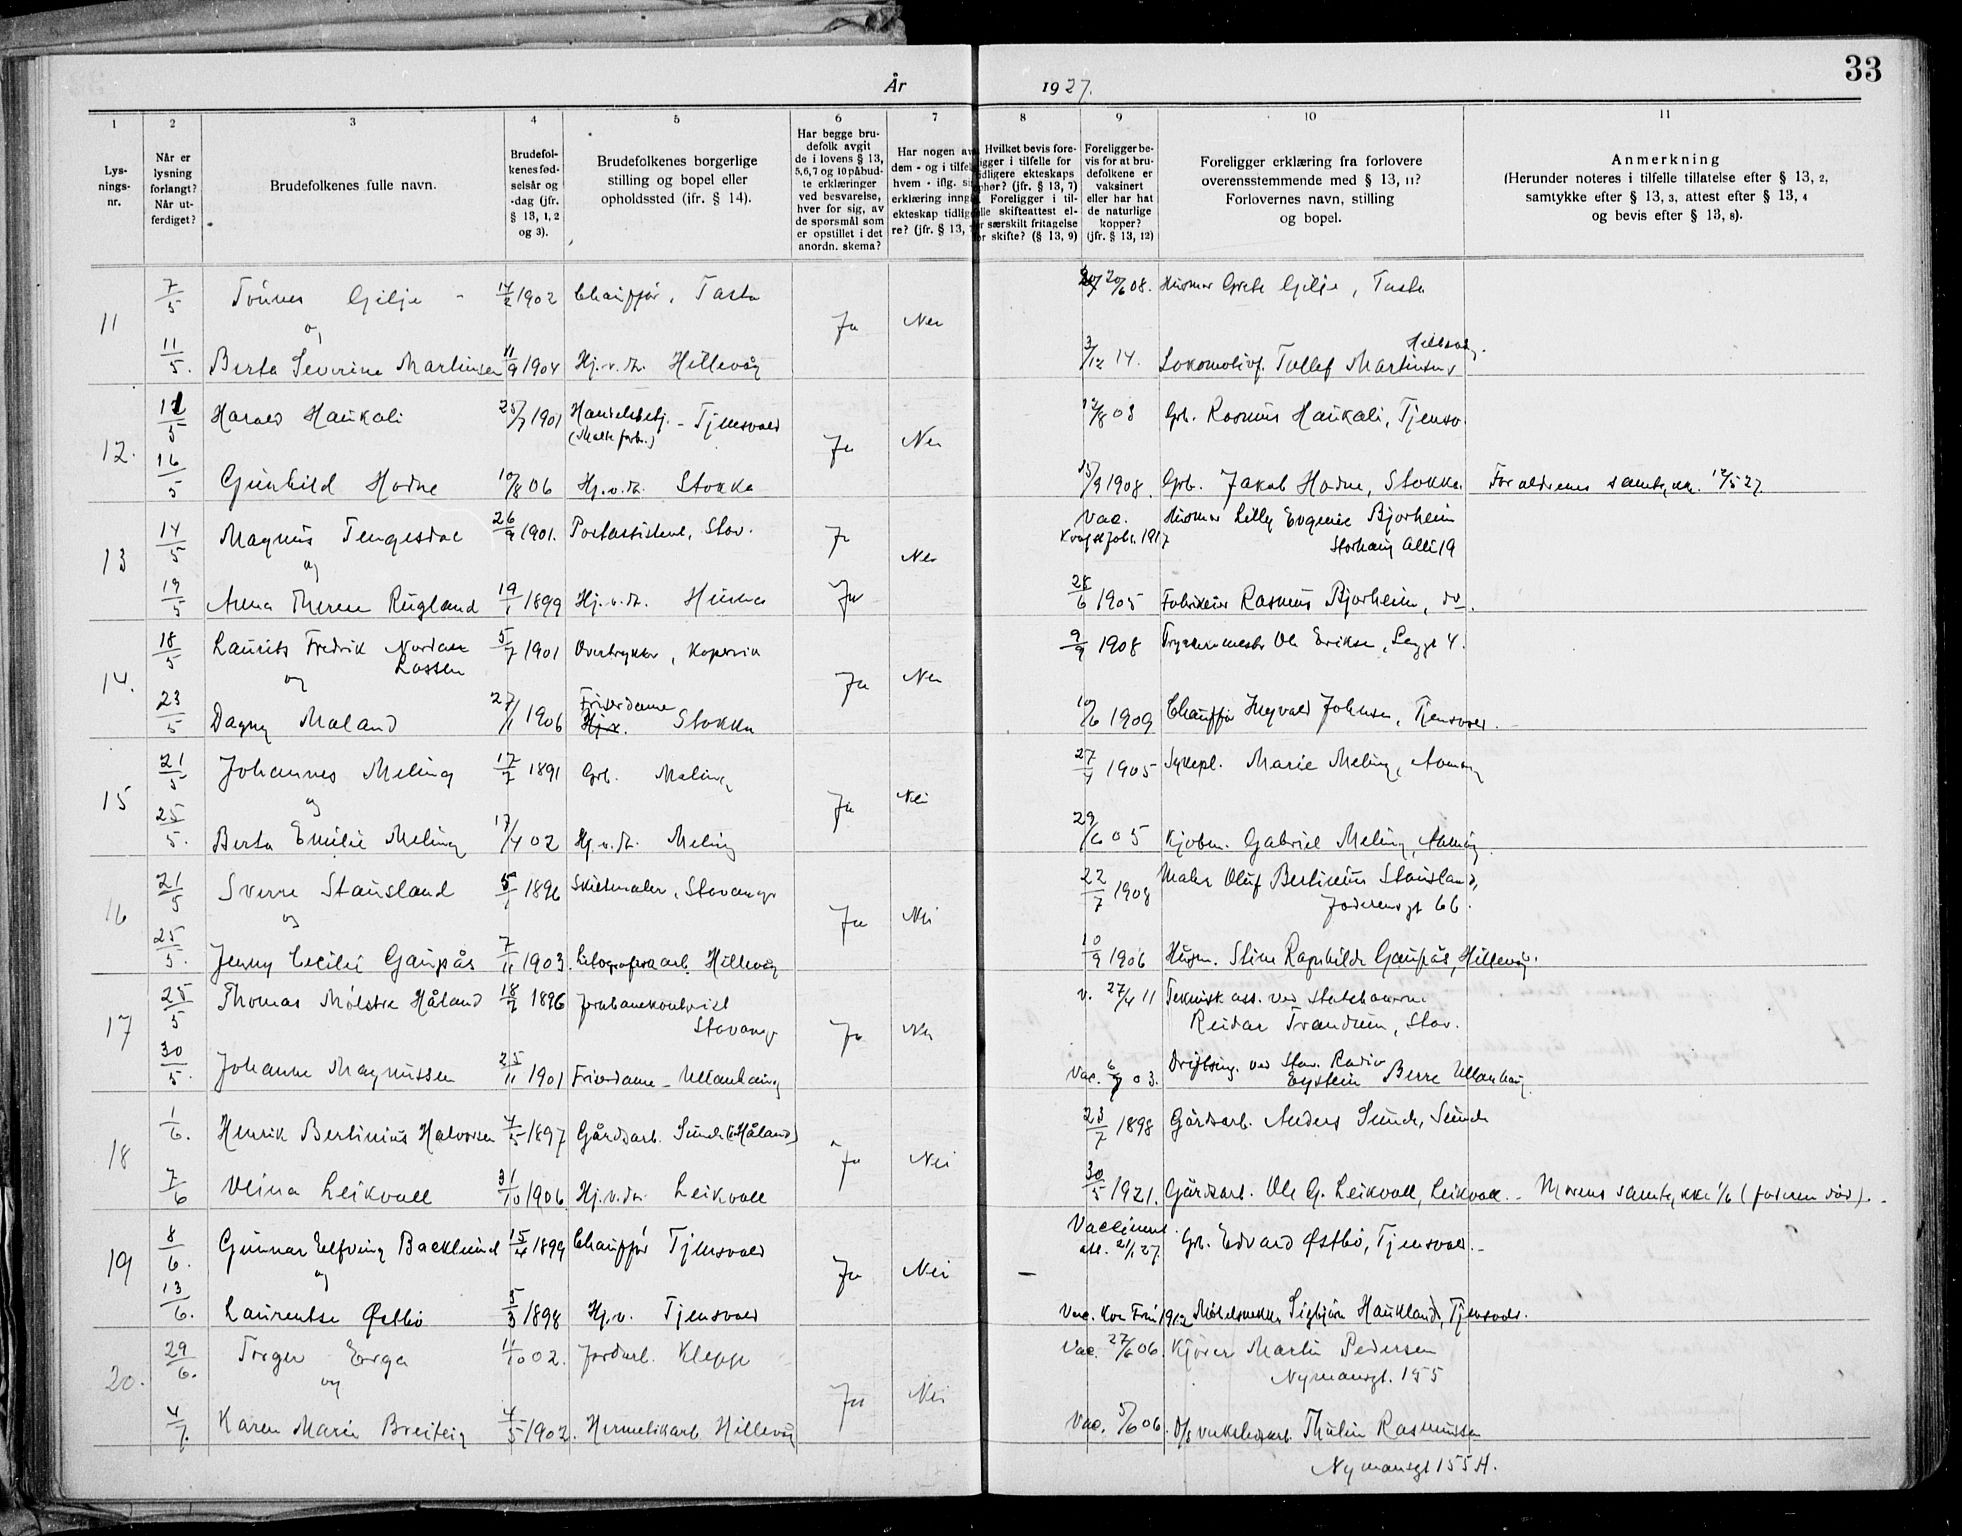 33
År 1927.
1 2 3 4 5 6 7 8 9 10 11
Lys-
nings-
nr.
Når er
lysning
forlangt?
Når ut-
ferdiget?
Brudefolkenes fulle navn.
Brudefol-
kenes fød-
selsår og
-dag (jfr.
§ 13, 1, 2
og 3).
Brudefolkenes borgerlige
stilling og bopel eller
opholdssted (ifr. § 14).
Har begge bru-
defolk avgit
de i lovens § 13,
5,6,7 og 10 påbud-
te erklæringer
ved besvarelse,
hver for sig, av
de spørsmål som
er opstillet i det
anordn. skema?
Har nogen av
dem - og i tilfel
hvem - iflg. si
erklæring inng
ekteskap tidlig
re? (jfr. § 13, 7
Hvilket bevis fore-
ligger i tilfelle for
tidligere ekteskaps
ophør? (jfr. § 13, 7)
Foreligger i til-
felle skifteattest el-
er særskilt fritagelse
for skifte? (§ 13, 9)
Foreligger be-
vis for at bru-
defolkene er
vaksinert
eller har hat
de naturlige
kopper?
(jfr. § 13, 12)
Foreligger erklæring fra forlovere
overensstemmende med § 13, 11?
Forlovernes navn, stilling
og bopel.
Anmerkning
(Herunder noteres i tilfelle tillatelse efter § 13, 2,
samtykke efter § 13, 3, attest efter § 13, 4
og bevis efter § 13, 8).
11 7/5 Tönnes Gilje - 14/2 1902 Chauffør, Tasta 20/6 08. Husmor Grete Gilje, Tasta
og Ja Nei
11/5. Berta Severine Martinsen 11/9 1904 Hj.v.d. Hillevåg 3/12 14. Lokomotivf. Tollef Martinsen Hillevåg.
12. 12/5 Harald Haukali 25/7 1901 Handelsbetj. - Tjensvold 12/8 03 Grb. Rasmus Haukali, Tjensv.
Ja Nei
16/5 Gunhild Hodne 10/8 06 Hj.v.d. Stokka 15/9 1908. Grb. Jakob Hodne, Stokka. Foreldrenes samtykke 12/5 27.
13 14/5 Magnus Tengesdal 26/9 1901. Postassistent, Stav. Ja Vac. 1917 Husmor Lilly Eugenie Bjorheim
Storhaug Allé 19
og Nei
19/5 Anna Therese Rugland 19/1 1899 Hj.v.d. Hinna Ja 28/6 1905 Fabrikeier Rasmus Bjorheim, do.
14. 18/5 Laurits Fredrik Nordase 5/7 1901 Overtrykker, Kopervik 9/9 1908 Trykkerimester Ole Eriksen,
Lassen
og Ja Nei
23/5 Dagny Maland 27/1 1906 Frisørdame Stokka 10/6 1909 Chauffør Ingvald Johnsen, Tjensvold.
15 21/5 Johannes Meling 17/7 1891 Grb. Meling 27/4 1905 Sykepl. Marie Meling,
og Ja Nei
25/5. Berta Emilie Meling 17/4 02 Hj.v.d. Meling 29/6 05 Kjøbm. Gabriel Meling,
16 21/5 Sverre Stausland 5/1 1896 Skiltmaler, Stavanger 22/7 1908 Maler Oluf Bertinius Stausland,
Jæderensgt 66.
og Ja Nei
25/5. Jenny Cecilie Gaupås 7/11 1903. Litografarb. Hillevåg 10/9 1906 Husm. Stine Ragnhilde Gaupås, Hillevåg.
17 25/5 Thomas Mølstre Håland 18/2 1896 Jernbanekontorist v. 27/4 11 Teknisk ass. ved Statsbanerne
Stavanger Reidar Trandum, Stav.
Ja Nei
30/5. Johanne Magnussen 25/11 1901 Frisørdame - Ullenhaug Vac. 6/7 03. Driftsing. ved Stav. Radio
Eystein Berre Ullenhaug
18 1/6. Henrik Bertinius Halvorsen 4/5 1897 Gårdsarb. Sunde (i Håland) 23/7 1898 Gårdsarb. Anders Sunde, Sunde
Ja Nei
7/6 Olina Leikvoll 31/10 1906. Hj.v.d. Leikvoll 30/5 1921. Gårdsarb. Ole G. Leikvoll, Leikvoll. - Morens samtykke 1/6 (faderen død). -
19 8/6. Gunnar Elfving Backlund 15/4 1899 Chauffør Tjensvold Vaccinert
att. 21/1 27. Grb. Edvard Østbø, Tjensvold. -
og Ja Nei -
13/6. Laurentse Østbø 5/3 1898 Hj.v. Tjensvold Vac. 1912 Møbelsnekker Sigbjørn Haukland, Tjensvold.
20. 29/6. Torger Erga 11/10 02. Jordarb. Klepp Vac. 27/6 06. Kjører Martin Pedersen
Nymansgt. 155
og Ja Nei
4/7. Karen Marie Breiteig 4/5 1902. Hermetikarb. Hillevåg Vac. 5/6 06. Thulin Rasmussen
Nymansgt 155 A.